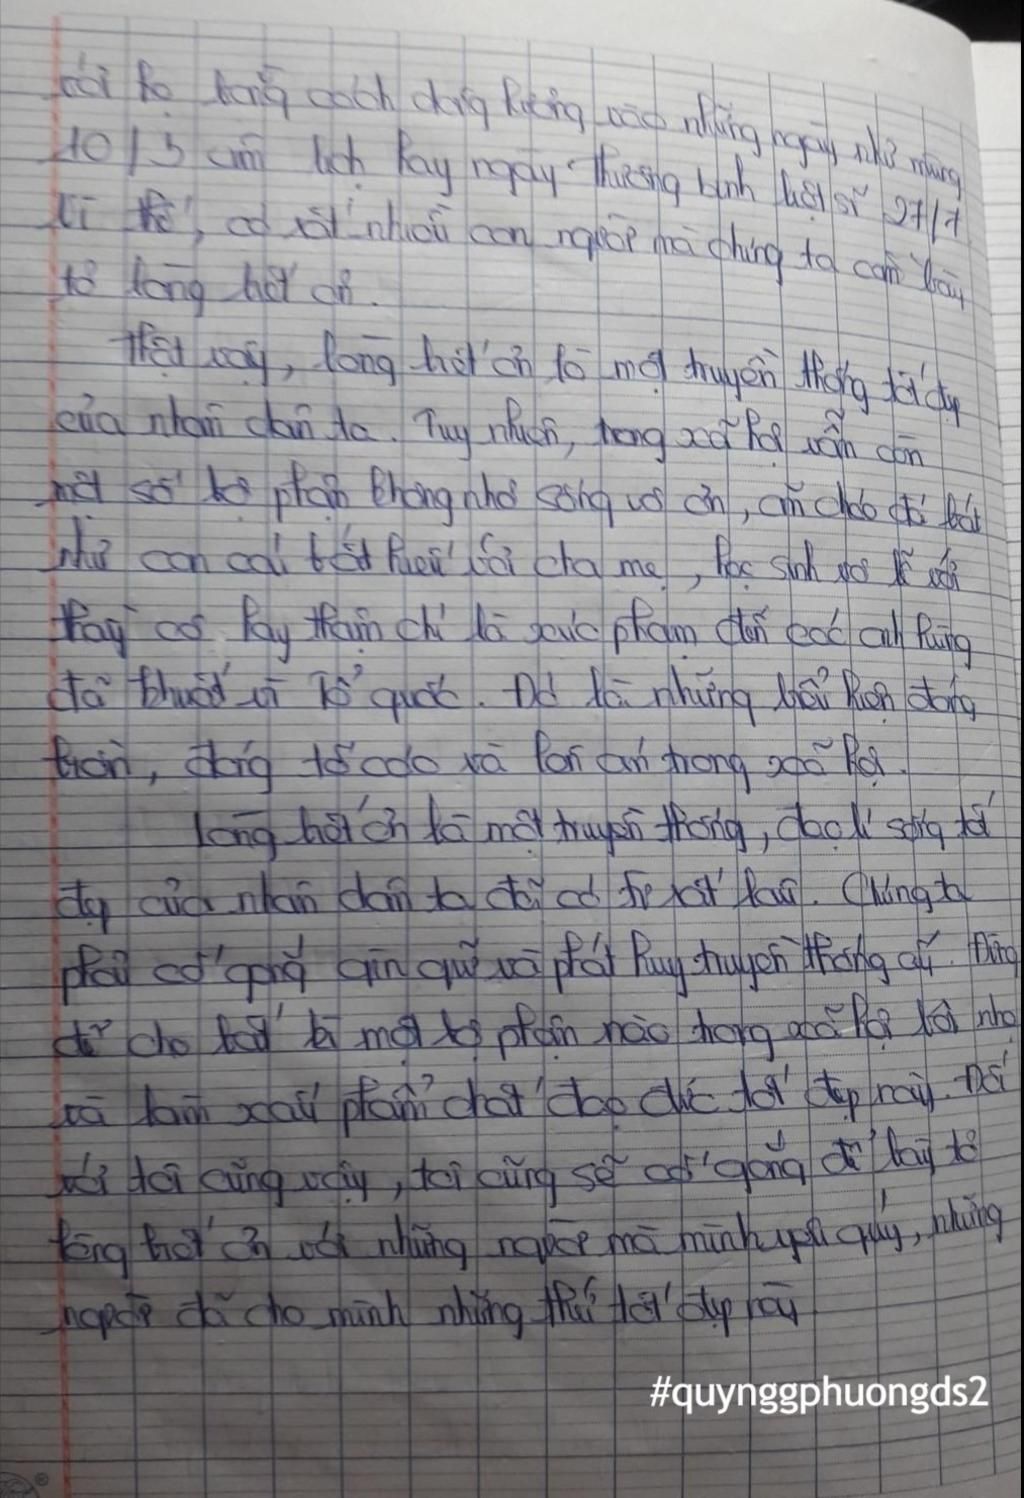 với họ bằng cách dâng hương vào những ngày như mùng
10/3 âm lịch hay ngày thương binh liệt sĩ 27/7
Vì thế, có rất nhiều con người mà chúng ta cần bày
tỏ lòng biết ơn.
Thật vậy, lòng biết ơn là một truyền thống tốt đẹp
của nhân dân ta. Tuy nhiên, trong xã hội vẫn còn
một số bộ phận không nhỏ sống vô ơn, ăn cháo đá bát
như con cái bất hiếu với cha mẹ, học sinh vô lễ với
thầy cô hay thậm chí là xúc phạm đến các anh hùng
đã khuất vì Tổ quốc. Đó là những biểu hiện đáng
buồn, đáng tố cáo và lên án trong xã hội.
Lòng biết ơn là một truyền thống, đạo lí sống tốt
đẹp của nhân dân ta đã có từ rất lâu. Chúng ta
phải cố gắng gìn giữ và phát huy truyền thống ấy. Đừng
để cho bất kì một bộ phận nào trong xã hội bôi nhọ
và làm xấu phẩm chất đạo đức tốt đẹp này. Đối
với tôi cũng vậy, tôi cũng sẽ cố gắng để bày tỏ
lòng biết ơn với những người mà mình yêu quý, những
người đã cho mình những thứ tốt đẹp này
#quynggphuongds2